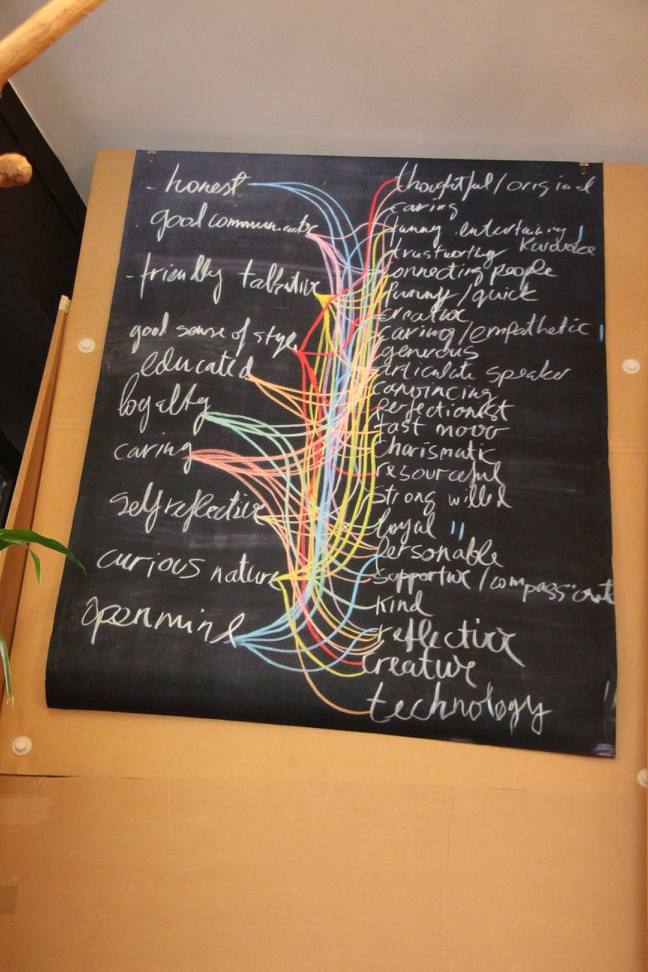 - honest
good communicator
- friendly talkative
good sense of style
educated
loyalty
caring
self reflective
curious nature
open mind
thoughtful / original
caring
funny entertaining
trustworthy
connecting people
funny / quick
creative
caring / empathetic
generous
articulate speaker
convincing
perfectionist
fast mover
charismatic
resourceful
strong willed
loyal "
personable
supportive / compassionate
kind
reflective
creative
technology